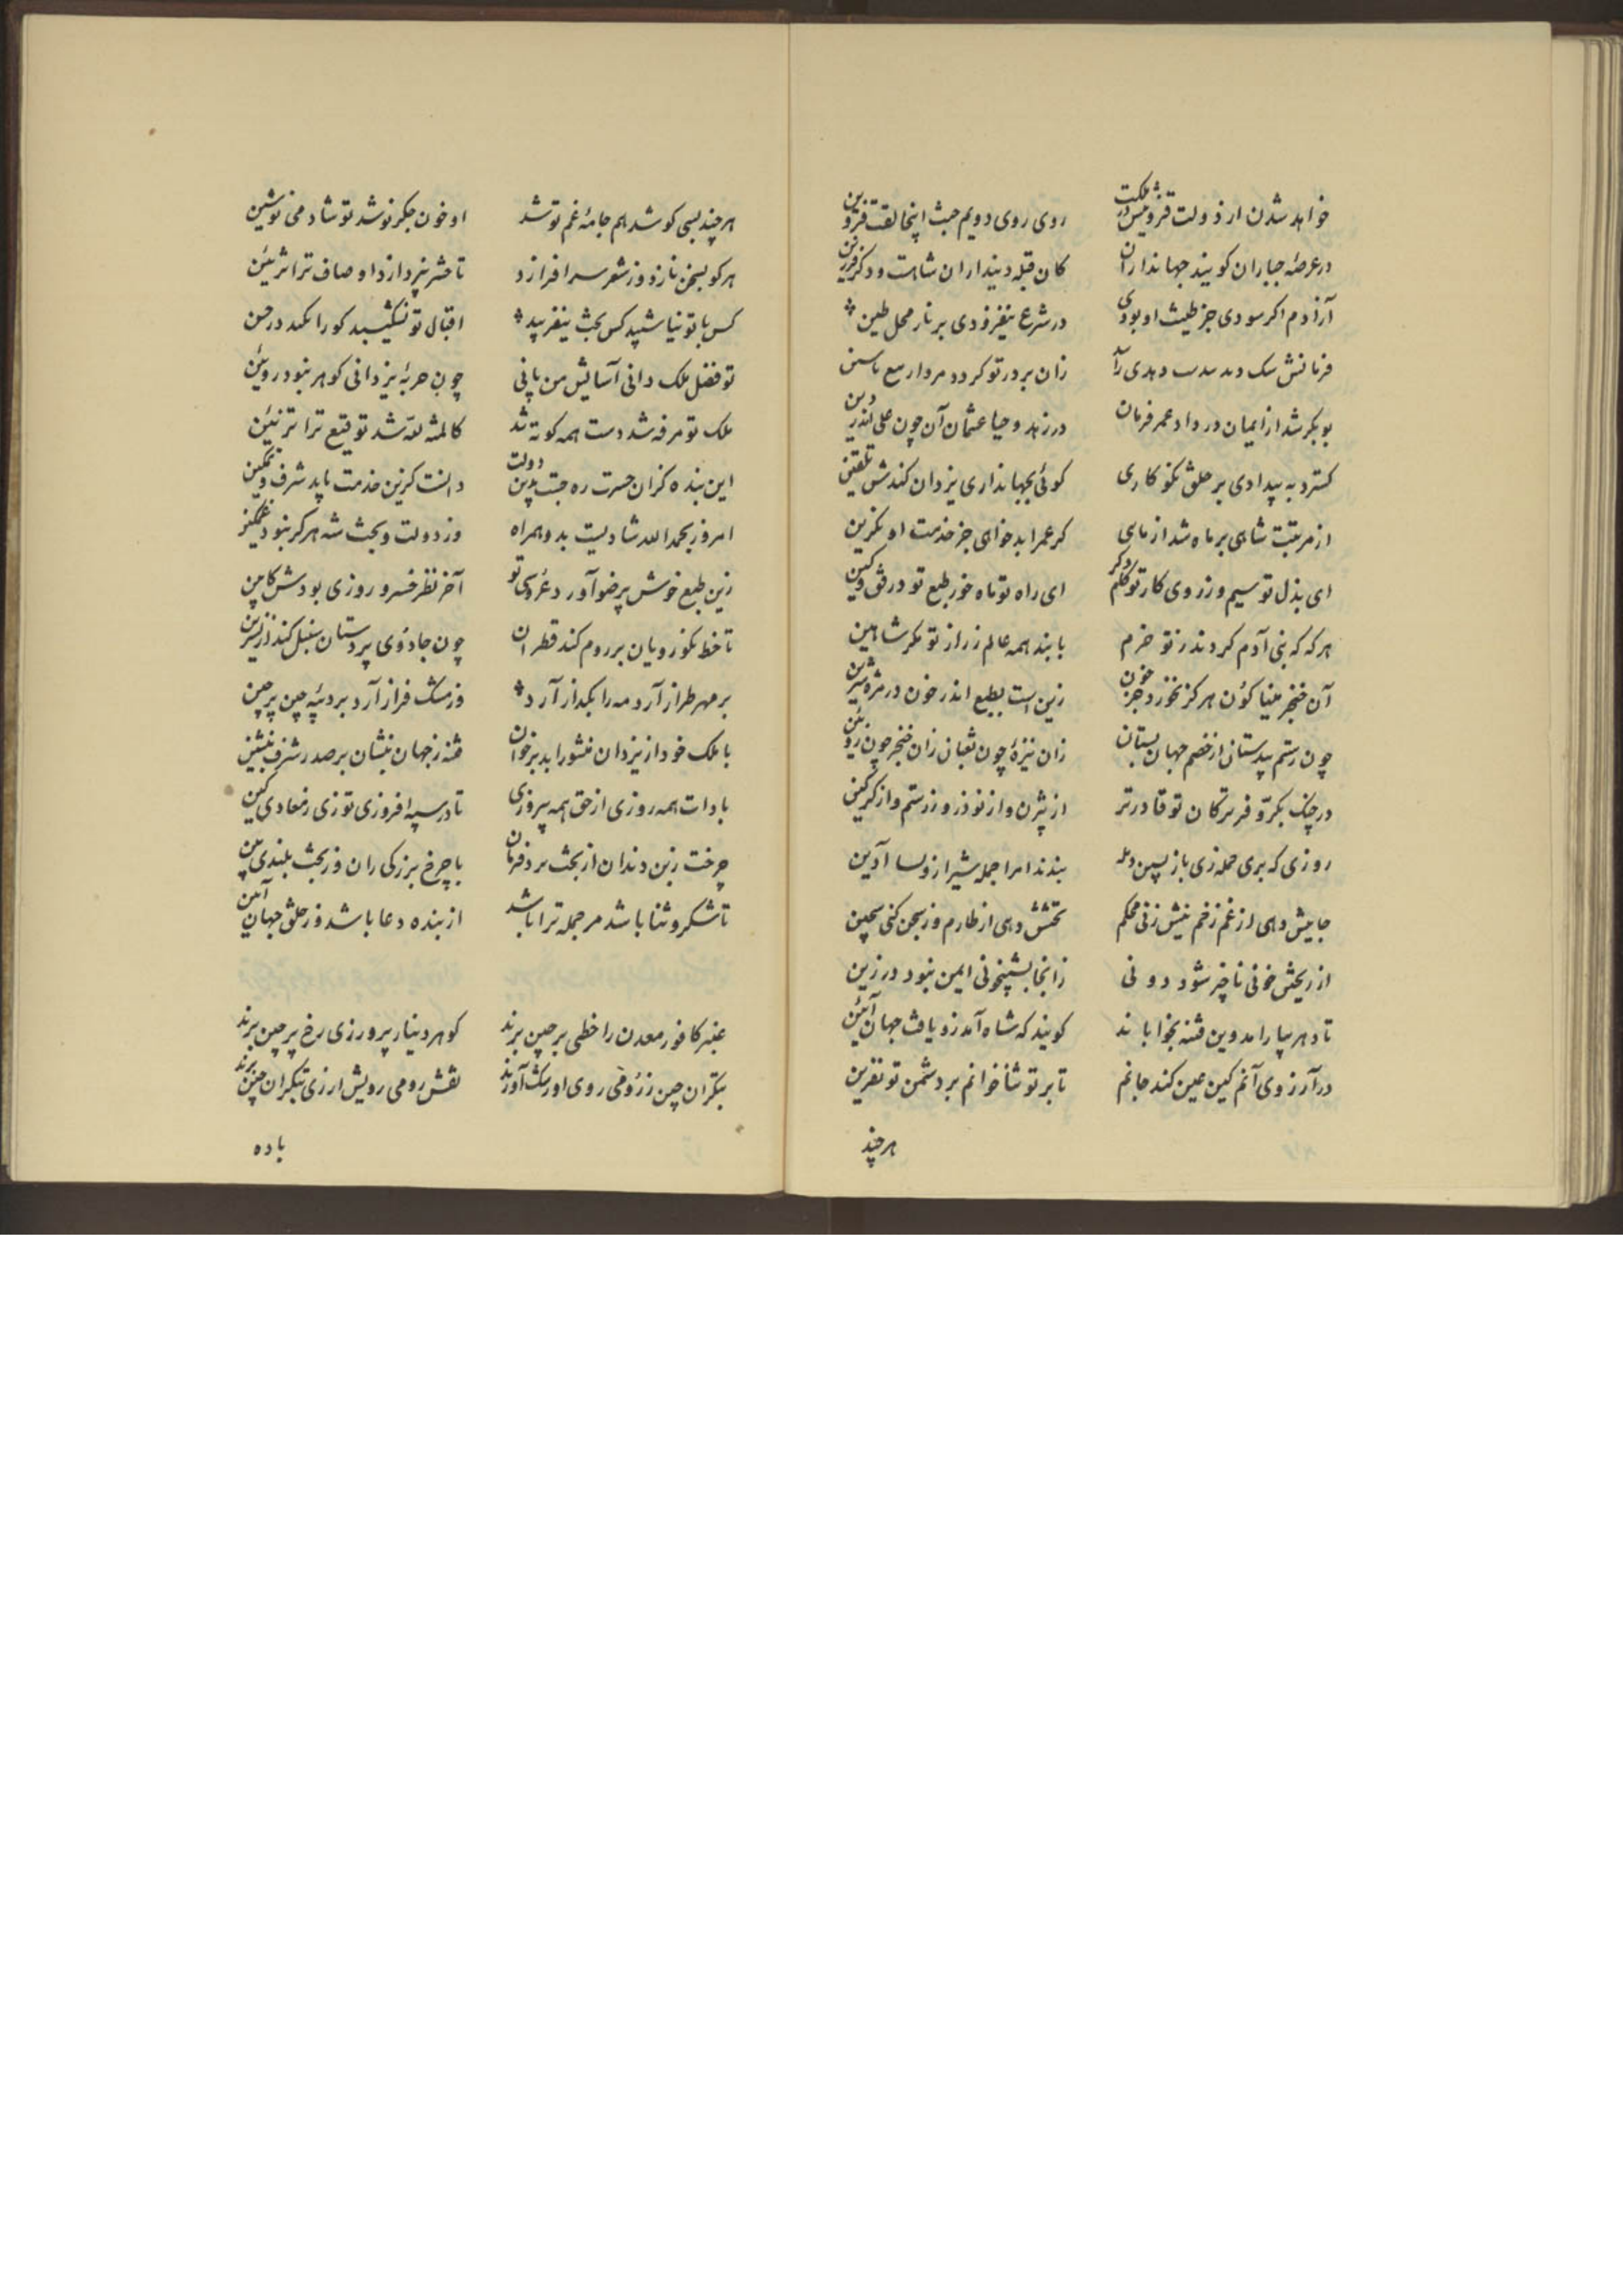 خواهد شدن از دولت قزوینش در مملکت روی روی دویم جنت اینجا لقت قزوین
در عرصهٔ جباران کویند جهانداران کان قبلهٔ دینداران شاهست و دکر فرزین
آزادم اکر سودی جز طینت او بودی در شرع نیفزودی بر نار محل طین
فرمانش زان بر در تو کردد
بوبکر شد از ایمان در داد عمر فرمان در زهد و حیا عثمان آن چون علی اندر دین
کسترد به بیدادی بر خلق نکو کاری کوئی بجهانداری یزدان کندش تلقین
از مرتبت شاهی بر ماه شد از ماهی کر عمر ابد خواهی جز خدمت او مکزین
ای بذل تو سیم و زر وی کار تو کلک و کر ای راه تو ماه خور طبع تو در
هر که که بنی آدم کردند ز تو خرم یابند همه عالم زر از تو مکر شاهین
آن خنجر مینا کون هرکز نخورد جز خون زین است بطبع اندر خون در مزه شیرین
چون رستم پردستان از خصم جهان بستان زان نیزهٔ چون ثعبان زان خنجر چون زوبین
در جنک بکر و فر ترکان تو قادرتر از بیژن و از نوذر و زرستم و از کرکین
روزی که بری حمله زی باز پسین بندند امرا جمله شیراز ولسا آدین
جاییش دهی از غم زخم نیش زنی محکم تختش دهی از طارم وز سجن کنی سجین
از ریختن خونی ناچیز شود دونی زانجا بشبیخونی ایمن نبود در زین
تا دهر بیارامد وین فتنه بخواباند کویند که شاه آمد زو یافت جهان آئین
در آرزوی آنم کین عین کند جانم تا بر تو ثنا خوانم بر دشمن تو نفرین
هرچند
هرچند بسی کوشد هم جامهٔ غم توشد او خون جکر نوشد تو شاد می نوشین
هر کو بسخن نازد وز شعر سر افرازد تا حشر نپردازد اوصاف ترا تزئین
کس با تو نیاشیبد کس بخت نیفریبد اقبال تو نشکیبد کو را نکند در حین
تو فضل ملک دانی آسایش من یانی چون حربهٔ یزدانی کوهر نبود روئین
ملک تو مرفه شد دست همه کوته شد کالمنة لله شد توقیع ترا تزئین
این بنده کزان حسرت ره جست بدین دولت دانست کزین خدمت یابد شرف و تمکین
امروز بحمدالله شادیست بدو همراه وز دولت و بخت شه هرکز نبود غمکین
زین طبع خوش پرضو آورد عروسی نو آخر نظر خسرو روزی بودش کابین
تا خط نکو رویان بر روم کند قطران چون جادوی پردستان سنبل کند از نسرین
بر مهر طراز آرد مه را بکداز آرد وز مشک فراز آرد بر دیبه چین پرچین
با ملک خود از یزدان منشور ابد برخوان فتنه ز جهان بنشان بر صدر شرف بنشین
بادات همه روزی از حق همه پیروزی تا در سپه افروزی توزی ز معادی کین
چرخت زبن دندان از بخت برد فرمان با چرخ بزرکی ران وز بخت بلندی بین
تا شکر و ثنا باشد مر جمله ترا باشد از بنده دعا باشد وز خلق جهان آمین
عنبر کافور معدن را خطی بر چین برند کوهر دینار پرور زی رخ پر چین برند
بتکران چین ز رومی روی او رشک آورند نقش رومی رویش ار زی بتکران چین برند
باده